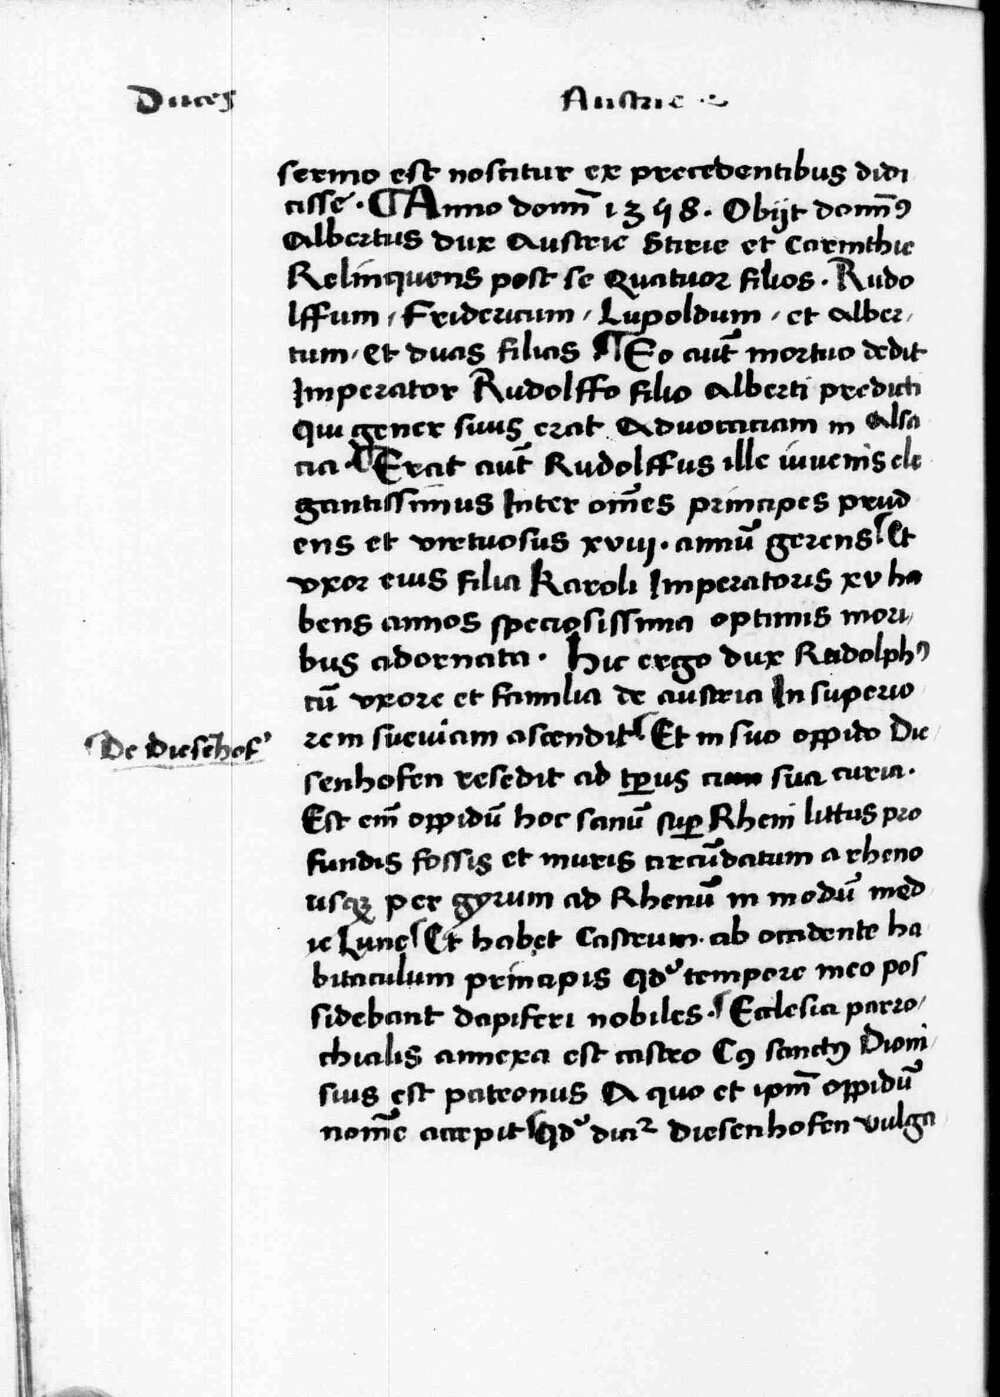 Duces Austrie
sermo est noscitur ex precedentibus didi
cisse. Anno domī 1358. Obijt domīꝰ
Albertus dux Austrie Stirie et Carinthie
Relinquens post se Quatuor filios. Rudo
lffum, Fridericum, Lupoldum, et Alber,
tum, Et duas filias Eo aut̄ mortuo dedit
Imperator Rudolffo filio Alberti predicti
qui gener suus erat Aduocaciam in Alsa
cia. Erat aut̄ Rudolffus ille iuuenis ele
gantissimus Inter om̄es principes prud
ens et virtuosus xviij. annū gerens Et
vxor eius filia Karoli Imperatoris xv ha
bens annos speciosissima optimis mori,
bus adornata. Hic ergo dux Rudolphꝰ
cū vxore et familia de austria In superio
rem sueuiam ascendit Et in suo oppido Die
De Diesehof'
senhofen resedit ad tp̄us cum sua curia.
Est em̄ oppidū hoc sanū suꝑ Rheni littus pro
fundis fossis et muris circūdatum a rheno
usqꝫ per gyrum ad Rhenū in modū med
ie Lune Et habet Castrum. ab occidente ha
bitaculum principis qd' tempore meo pos
sidebant dapiferi nobiles. Ecclesia parro,
chialis annexa est castro Cꝰ sanctꝰ Dioni,
sius est patronus A quo et ipm̄ oppidū
nom̄e accepit Qd' dicit᷑ diesenhofen vulga